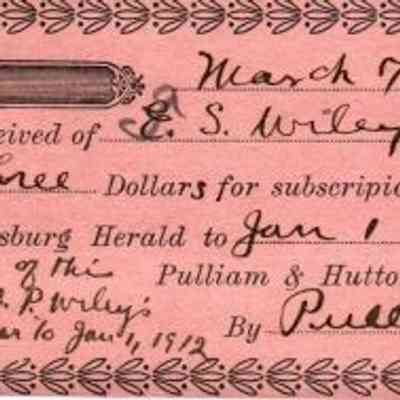 March 7
ceived of E. S. Wiley
hree Dollars for subscripic
sburg Herald to Jan 1
of this Pulliam & Hutto
P. Wiley's
ar to Jan 1, 1912 By Pull